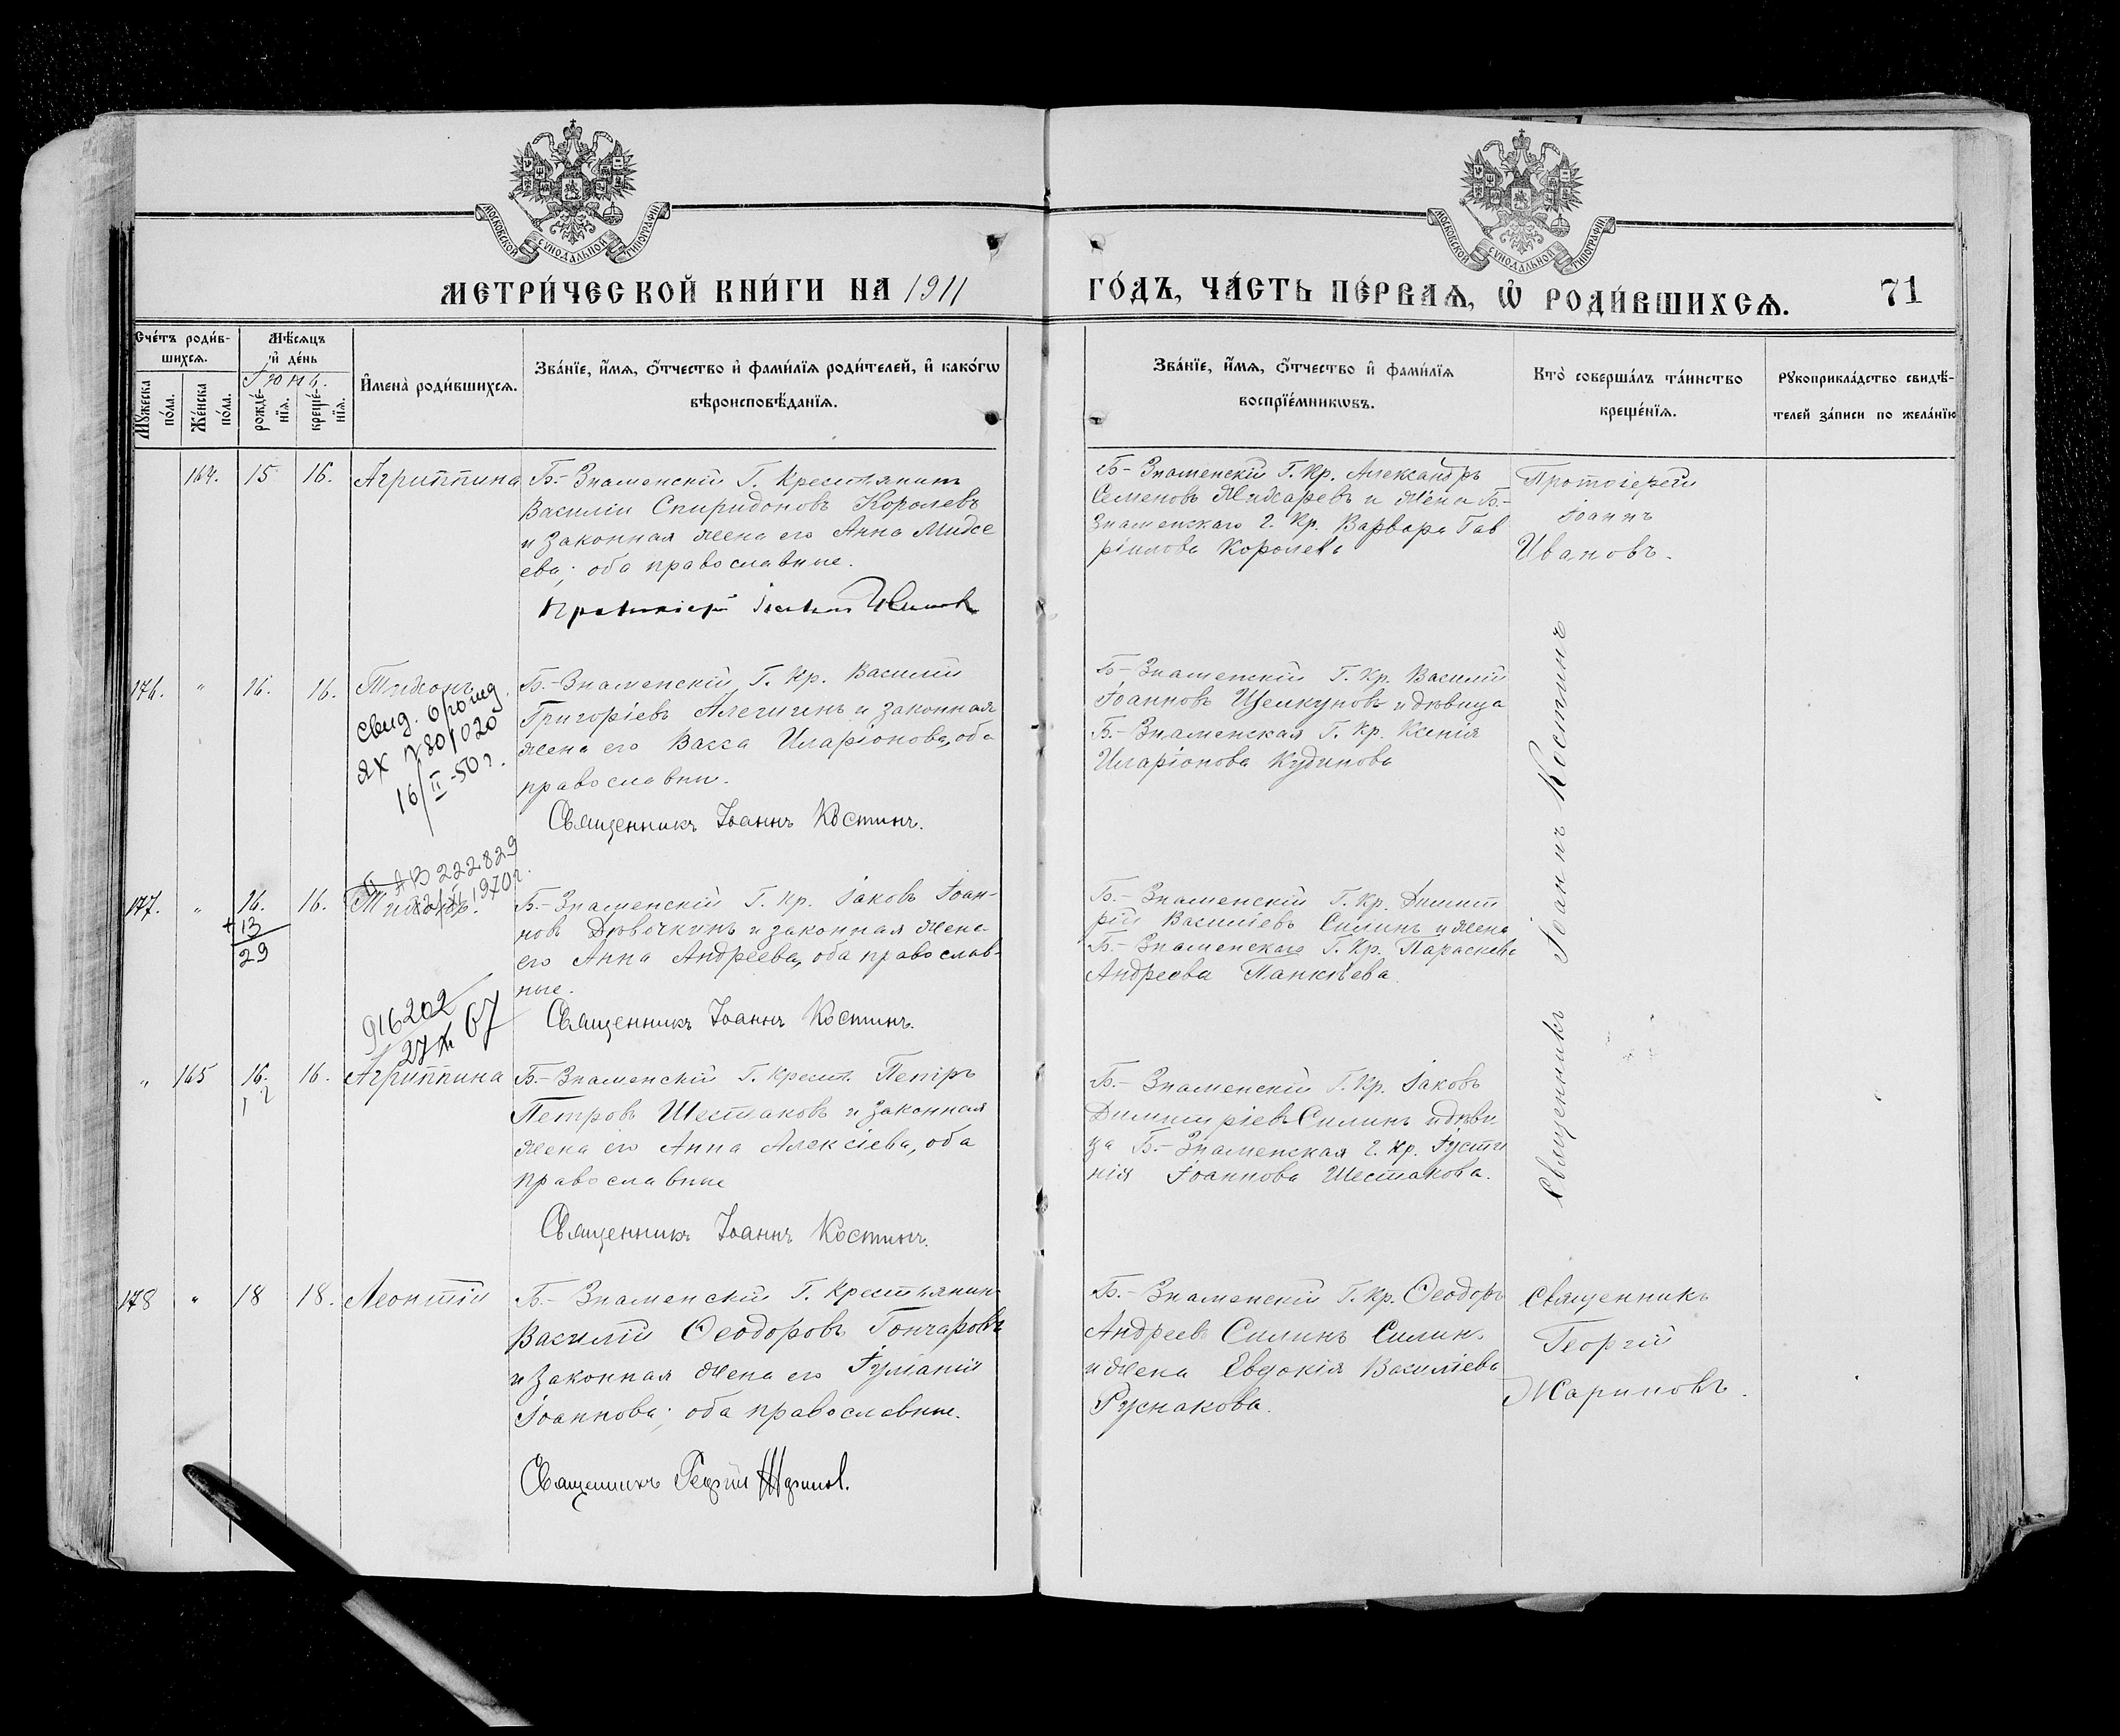 МОСКОВСКОЙ СѴНОДАЛЬНОЙ ТИПОГРАФІИ
МОСКОВСКОЙ СѴНОДАЛЬНОЙ ТИПОГРАФІИ
МЕТРИ́ЧЕСКОЙ КНИ́ГИ НА 1911
ГО́ДЪ, ЧА́СТЬ ПЕ́РВАѦ, Ѡ҆ РОДИ́ВШИХСѦ.
71
Сче́тъ роди́в-
шихсѧ.
Мꙋ́жеска
по́ла.
Же́нска
по́ла.
Мѣ́сѧцъ
и҆ де́нь
Іюнь.
рожде́-
нїѧ.
креще́-
нїѧ.
И҆мена̀ роди́вшихсѧ.
Зва́нїе, и҆́мѧ, ѻ҆́тчество и҆ фами́лїѧ роди́телей, и҆ како́гѡ
вѣроисповѣ́данїѧ.
Зва́нїе, и҆́мѧ, ѻ҆́тчество и҆ фами́лїѧ
воспрїе́мникѡвъ.
Кто̀ соверша́лъ та́инство
креще́нїѧ.
Рꙋкоприкла́дство свидѣ́-
телей за́писи по жела́нїю
164. 15 16. Агриппина
Б.- Знаменскій Г. Крестьянинъ
Василій Спиридоновъ Королевъ
и законная жена его Анна
ева; оба православные.
Протоіерей Іоаннъ Ивановъ
Б- Знаменскій Г. Кр. Александръ
Семеновъ Жихаревъ и жена Б-
Знаменскаго Г. Кр. Варвара Гав
ріилова Королева
Протоіерей
Іоаннъ
Ивановъ.
176. " 16. 16. Тихонъ
свид. о рожд.
ЯХ № 801020
16/II-50 г.
Б.- Знаменскій Г. Кр. Василій
Григоріевъ и законная
жена его Васса Иларіонова, оба
православны.
Священникъ Іоаннъ Костинъ.
Б- Знаменскій Г. Кр. Василій
Іоанновъ Щелкуновъ и дѣвица
Б.- Знаменская Г. Кр. Ксенія
Иларіонова Кудинова
Священникъ Іоаннъ Костинъ
АВ 222829
1970 г.
177. " 16. 16. Тихонъ.
+13
29
Б.- Знаменскій Г. Кр. Іаковъ Іоан-
новъ Дѣвочкинъ и законная жена
его Анна Андреева, оба православ-
ные.
Священникъ Іоаннъ Костинъ.
Б.- Знаменскій Г. Кр. Димит
рій Василіевъ Силинъ и жена
Б.- Знаменскаго Г. Кр. Параскева
Андреева Панкѣева.
916202
67
" 165 16. 16. Агриппина
Б.- Знаменскій Г. Крест. Петръ
Петровъ Шестаковъ и законная
жена его Анна Алексіева, оба
православные
Священникъ Іоаннъ Костинъ.
Б.- Знаменскій Г. Кр. Іаковъ
Димитріевъ Силинъ и дѣви
ца Б.- Знаменская Г. Кр. Іусти
нія Іоаннова Шестакова.
178 " 18 18. Леонтій
Б.- Знаменскій Г. Крестьянинъ
Василій Ѳеодоровъ Гончаровъ
и законная жена его Іуліанія
Іоаннова; оба православные.
Священникъ Георгій Жариновъ.
Б.- Знаменскій Г. Кр. Ѳеодоръ
Андреевъ Силинъ Силинъ
и жена Евдокія Василіева
Руснакова.
Священникъ
Георгій
Жариновъ.